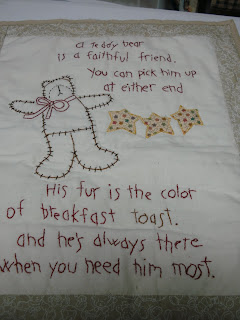 a Teddy bear
is a faithful friend.
You can pick him up
at either end
His fur is the color
of breakfast toast.
and he's always there
when you need him most.